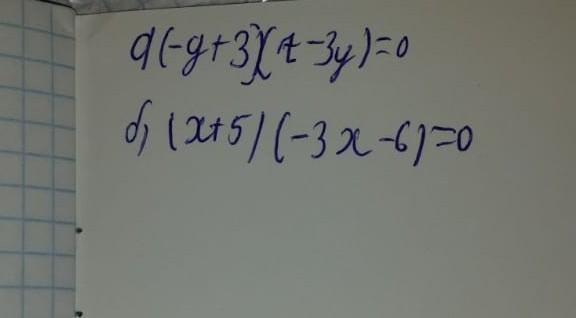 а(-y+3)(7-3y)=0
б) (x+5)(-3x-6)=0